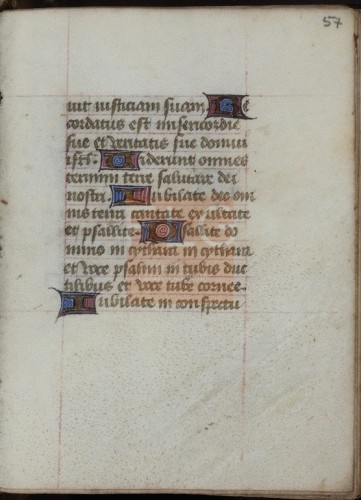 57
uit iusticiam suam. Re
cordatus est misericordie
sue et veritatis sue domui
isrl. Viderunt omnes
termini terre salutare dei
nostri. Iubilate deo om
nis terra cantate exultate
et psallite. Psallite do
mino in cythara in cythara
et voce psalmi in tubis duc
tilibus et voce tube cornee.
Iubilate in conspectu